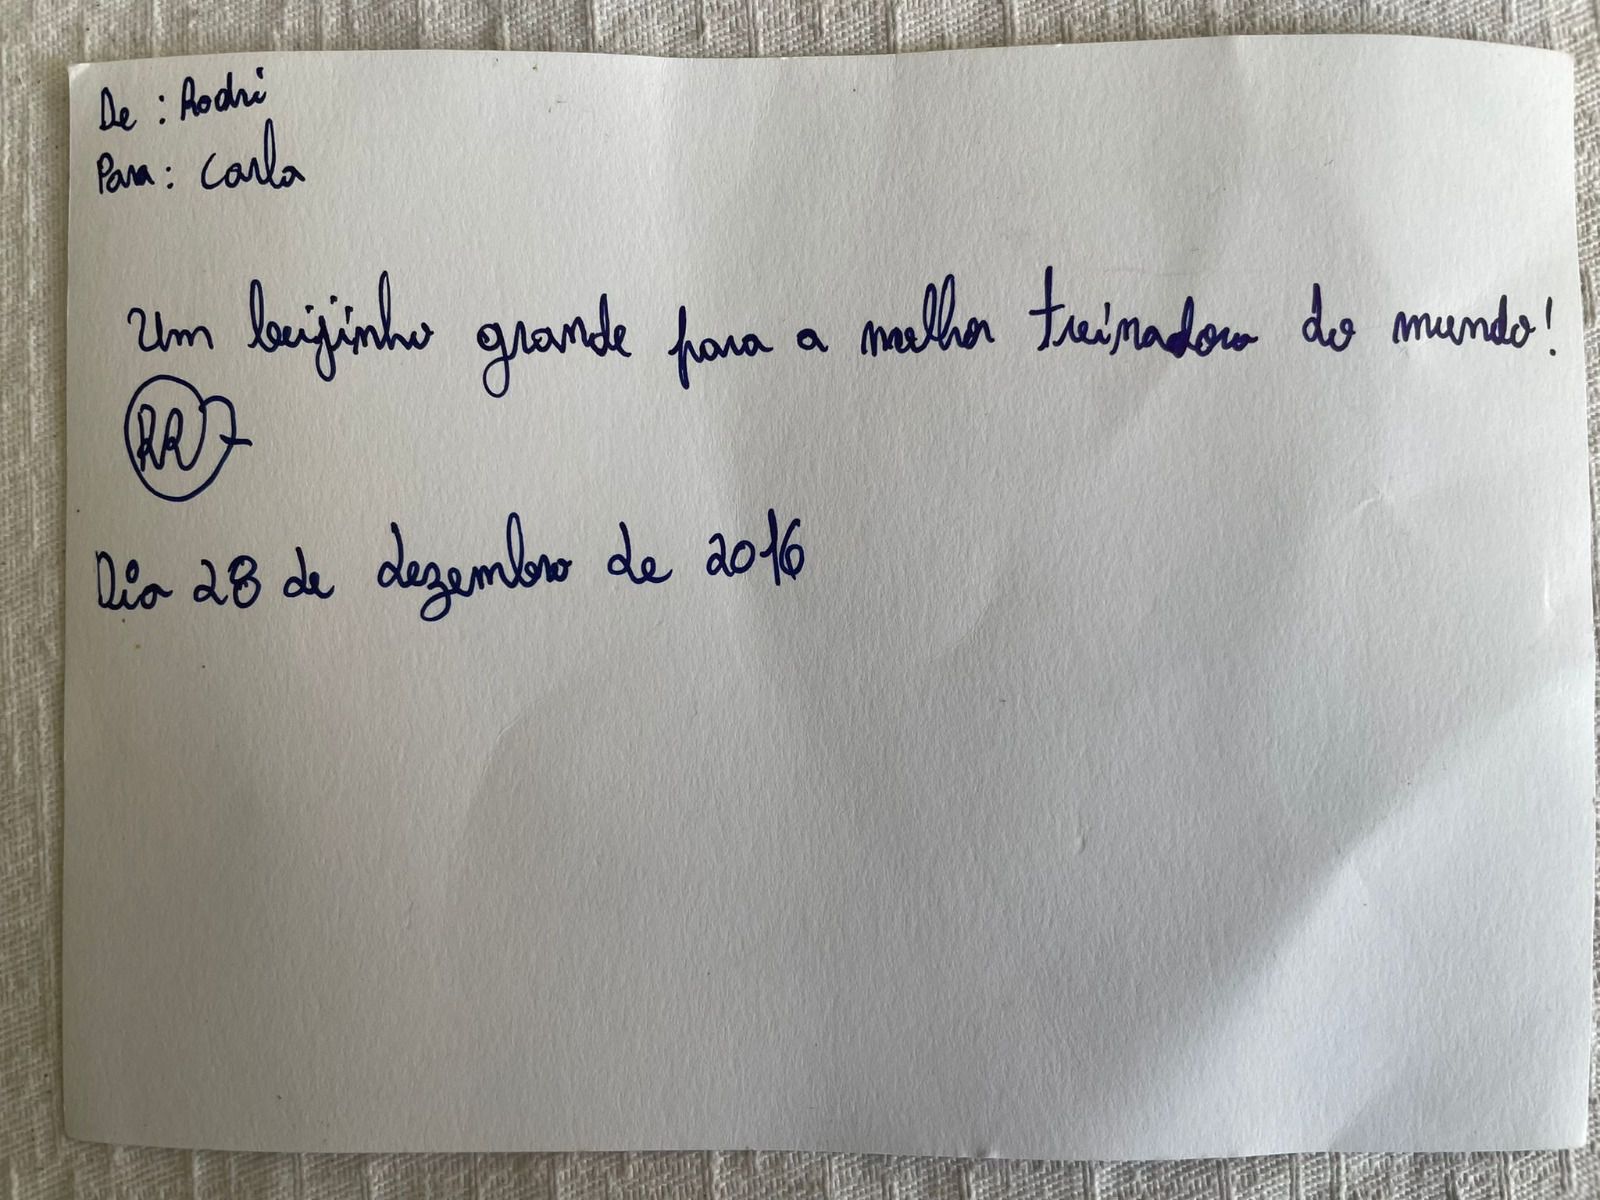 De : Rodri
Para : Carla
Um beijinho grande para a melhor treinadora do mundo!
RR7
Dia 28 de dezembro de 2016